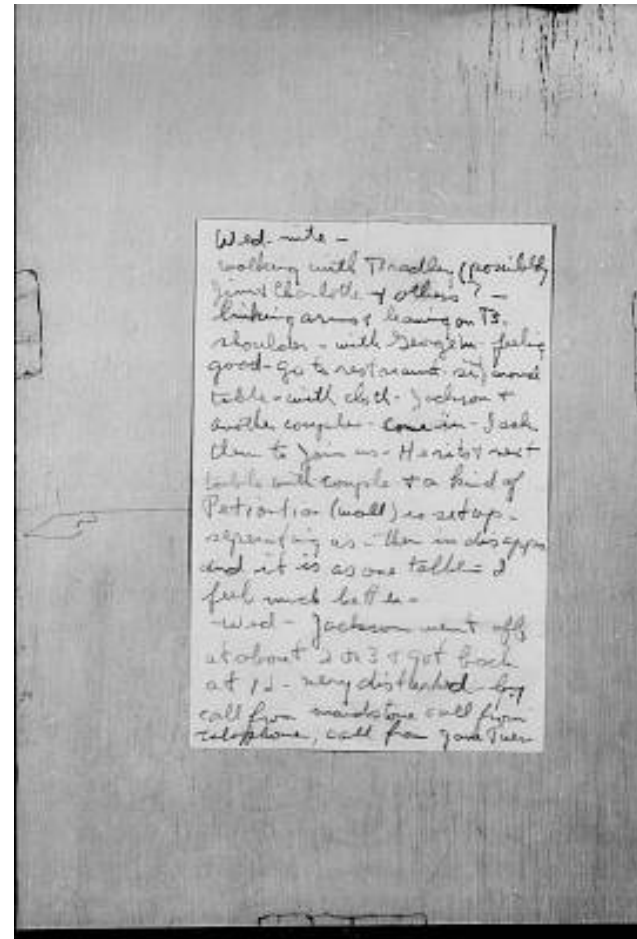 Wed. nite -
walking with Bradley (possibly
Jim & Charlotte & others? -
linking arms & leaning on B.
shoulder - with George m - feeling
good - go to restraunt sit around
table - with cloth - Jackson +
another couple - come in - I ask
them to join us - He sits next
table with couple + a kind of
(wall) is set up -
separating us - then in disappears
and it is as one table - I
feel much better -
- Wed - Jackson went off
at about 2 or 3 + got back
at 12 - very disturbed by
call from maidstone call from
telephone, call from Jane